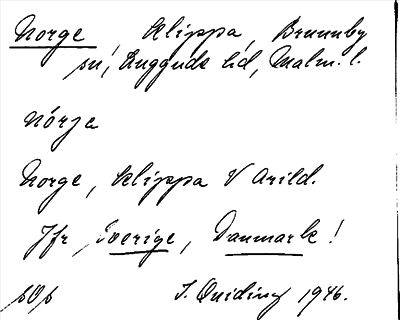 Norge klippa, Brunnby
sn, Luggude hd, Malm. l.
nórja
Norge, klippa V Arild.
Jfr Sverige, Danmark!
sOs S. Quiding 1946.